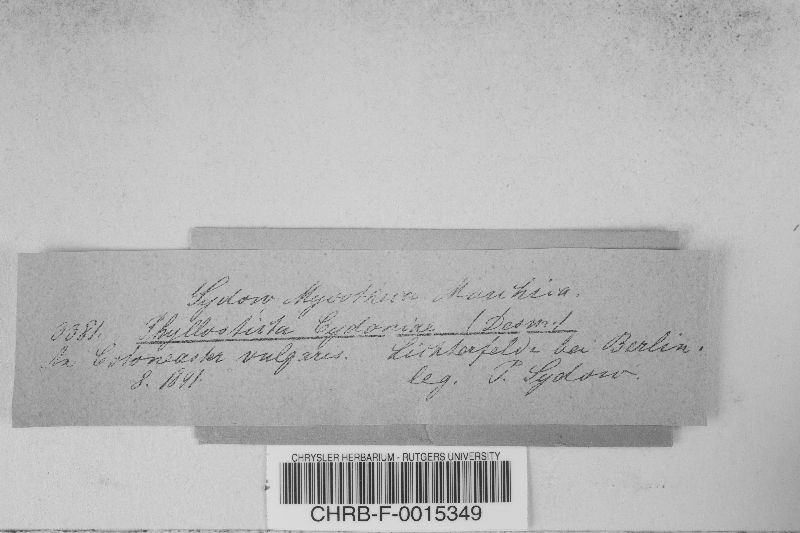 Sydow Mycotheca Marchica.
3381. Phyllosticta Cydoniae (Desm.)
In Cotoneaster vulgaris. Lichterfelde bei Berlin.
8. 1891. leg. P. Sydow.
CHRYSLER HERBARIUM - RUTGERS UNIVERSITY
CHRB-F-0015349